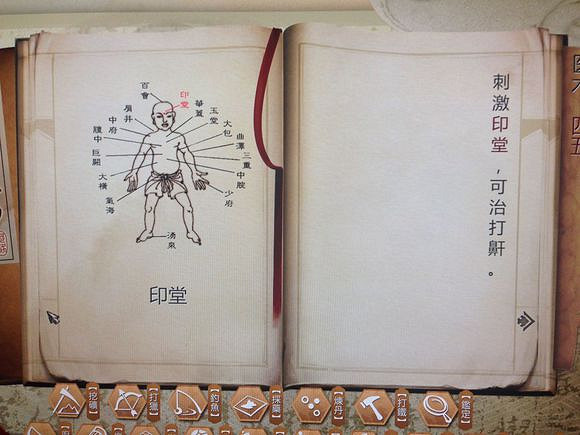 百會
印堂
華蓋
玉堂
大包
曲澤
三重
中脘
少府
肩井
中府
膻中
巨闕
大橫
氣海
湧泉
印堂
刺激印堂，可治打鼾。
【挖礦】
【打獵】
【釣魚】
【採藥】
【煉丹】
【打鐵】
【鑑定】